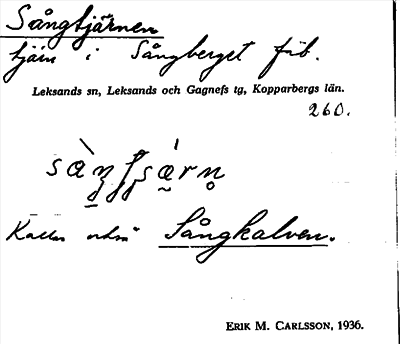 Sångtjärnen
tjärn i Sångberget fäb.
Leksands sn, Leksands och Gagnefs tg, Kopparbergs län.
260.
Kallas också Sångkalven.
ERIK M. CARLSSON, 1936.